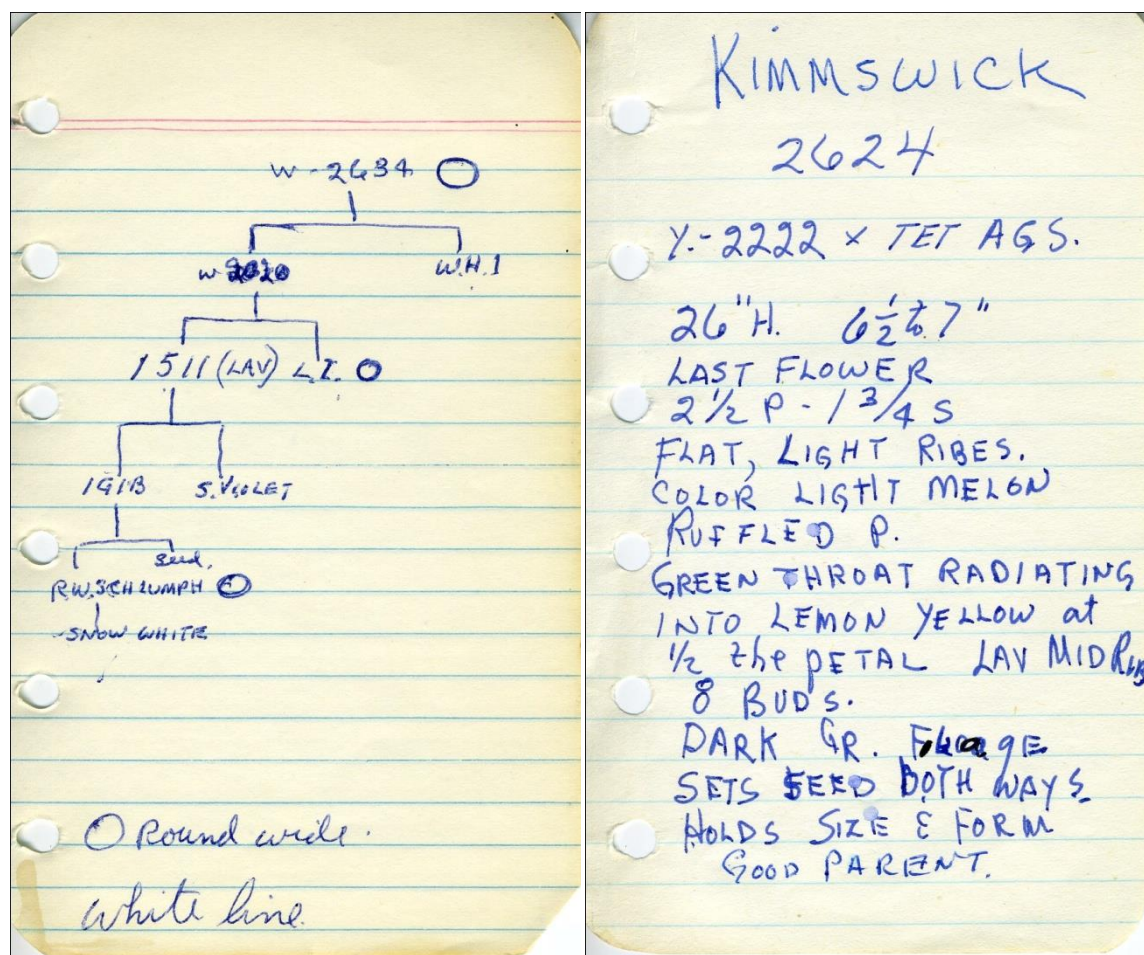 W-2634
W-2020 W.H.1
1511 (LAV) L.I.
S. VIOLET
seed.
R.W. SCHLUMPH
SNOW WHITE
Round wide.
White line.
KIMMSWICK
2624
Y.-2222 x TET AGS.
26"H. 6 1/2 to 7"
LAST FLOWER
2 1/2 P - 1 3/4 S
FLAT, LIGHT RIBES.
COLOR LIGHT MELON
RUFFLED P.
GREEN THROAT RADIATING
INTO LEMON YELLOW at
1/2 the PETAL LAV MIDRIB
8 BUDS.
DARK GR.
SETS SEED BOTH WAYS
HOLDS SIZE & FORM
GOOD PARENT.